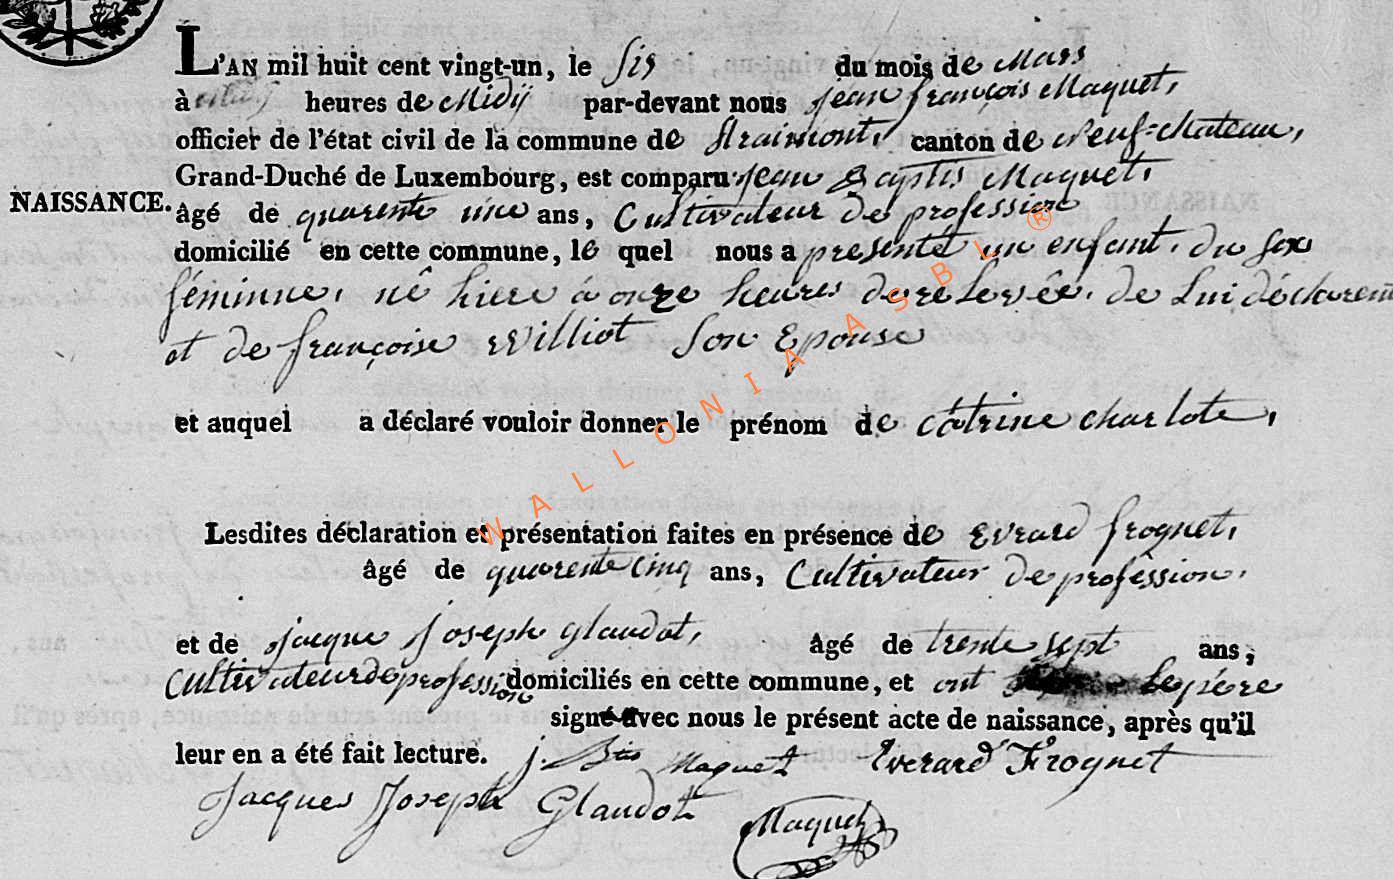 L'AN mil huit cent vingt-un, le Sis du mois de Mars
à heures de Midij par-devant nous jean françois Maquet,
officier de l'état civil de la commune de Straimont, canton de Neuf-chateau,
Grand-Duché de Luxembourg, est comparu jean Baptis Maquet,
NAISSANCE. âgé de quarente une ans, Cultivateur de profession
domicilié en cette commune, le quel nous a presenté un enfant, du sex
féminne, nê hiere à onze heures de relevée, de Lui déclarent
et de françoise Williot Son Epouse
et auquel a déclaré vouloir donner le prénom de cátrine charlote,
Lesdites déclaration et présentation faites en présence de Evrard frognet,
âgé de quarente cinq ans, Cultivateur de profession,
et de jacque joseph glaudot, âgé de trente sept ans,
Cultivateur de profession domiciliés en cette commune, et ont le pére
signé avec nous le présent acte de naissance, après qu'il
leur en a été fait lecture. j. Btis Maquet Everard Frognet
Jacques Joseph Glaudot
Maquet
WALLONIA ASBL ®